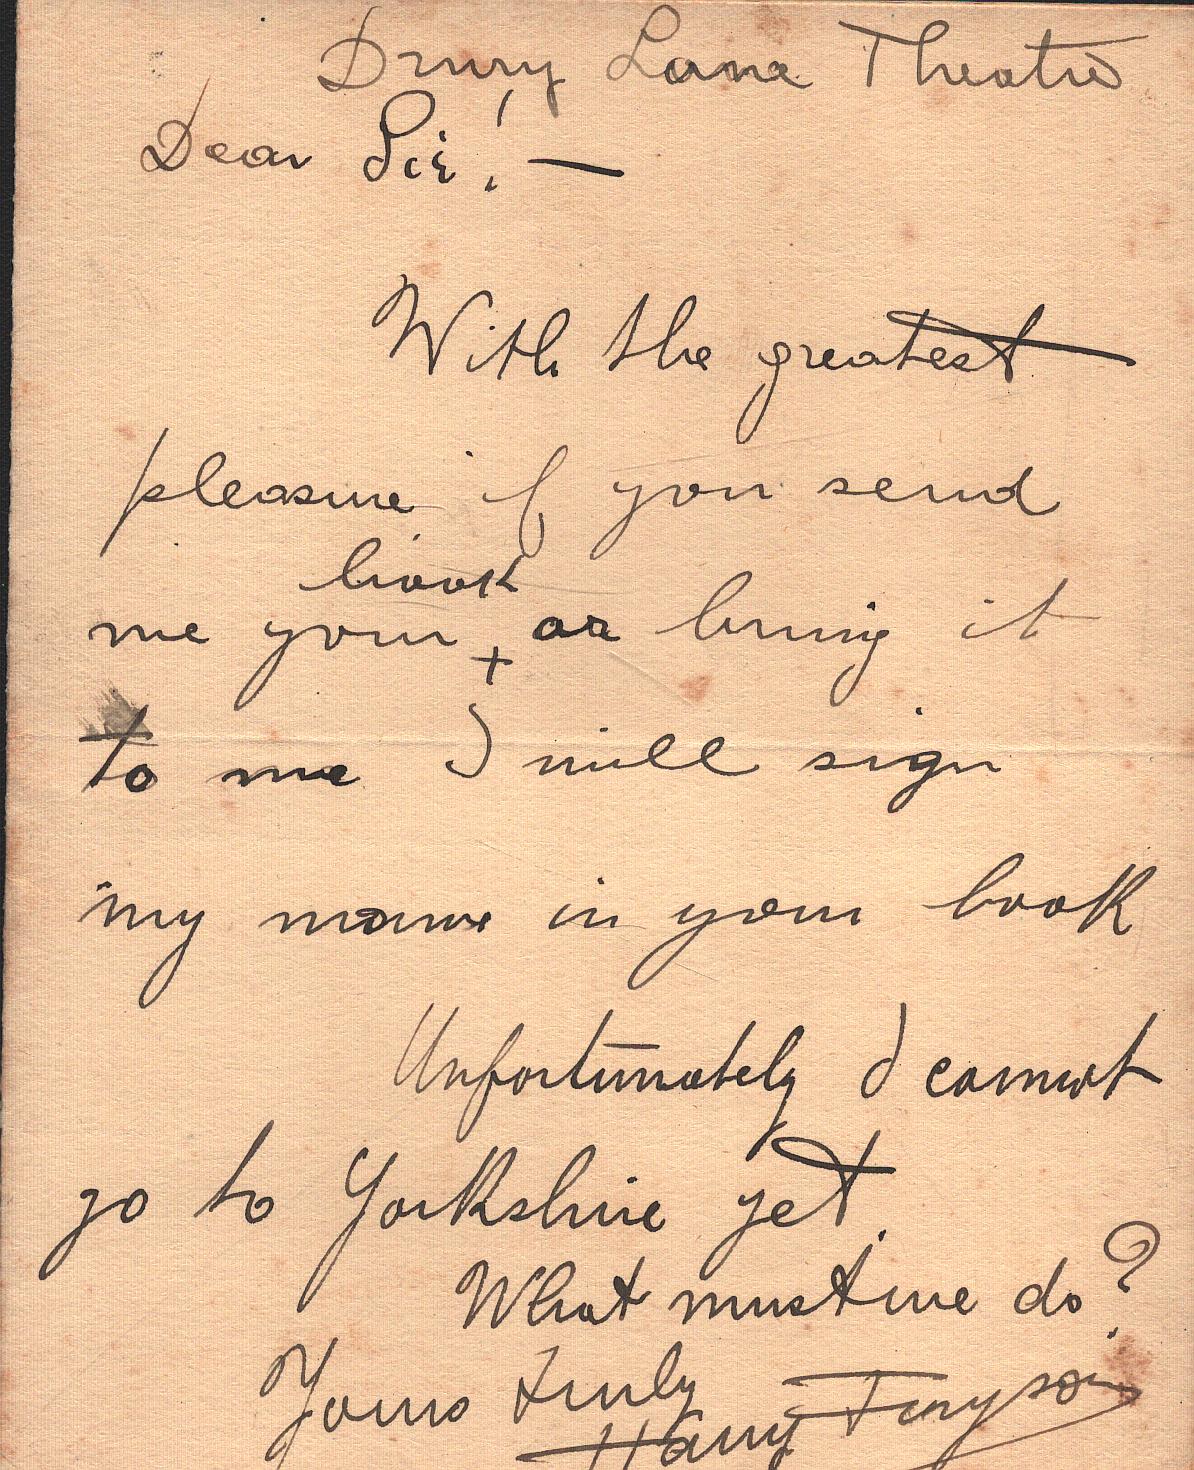 Drury Lane Theatre
Dear Sir! —
With the greatest
pleasure if you send
book
me your + or bring it
to me I will sign
my name in your book
Unfortunately I cannot
go to Yorkshire yet.
What must we do?
Yours truly
Harry